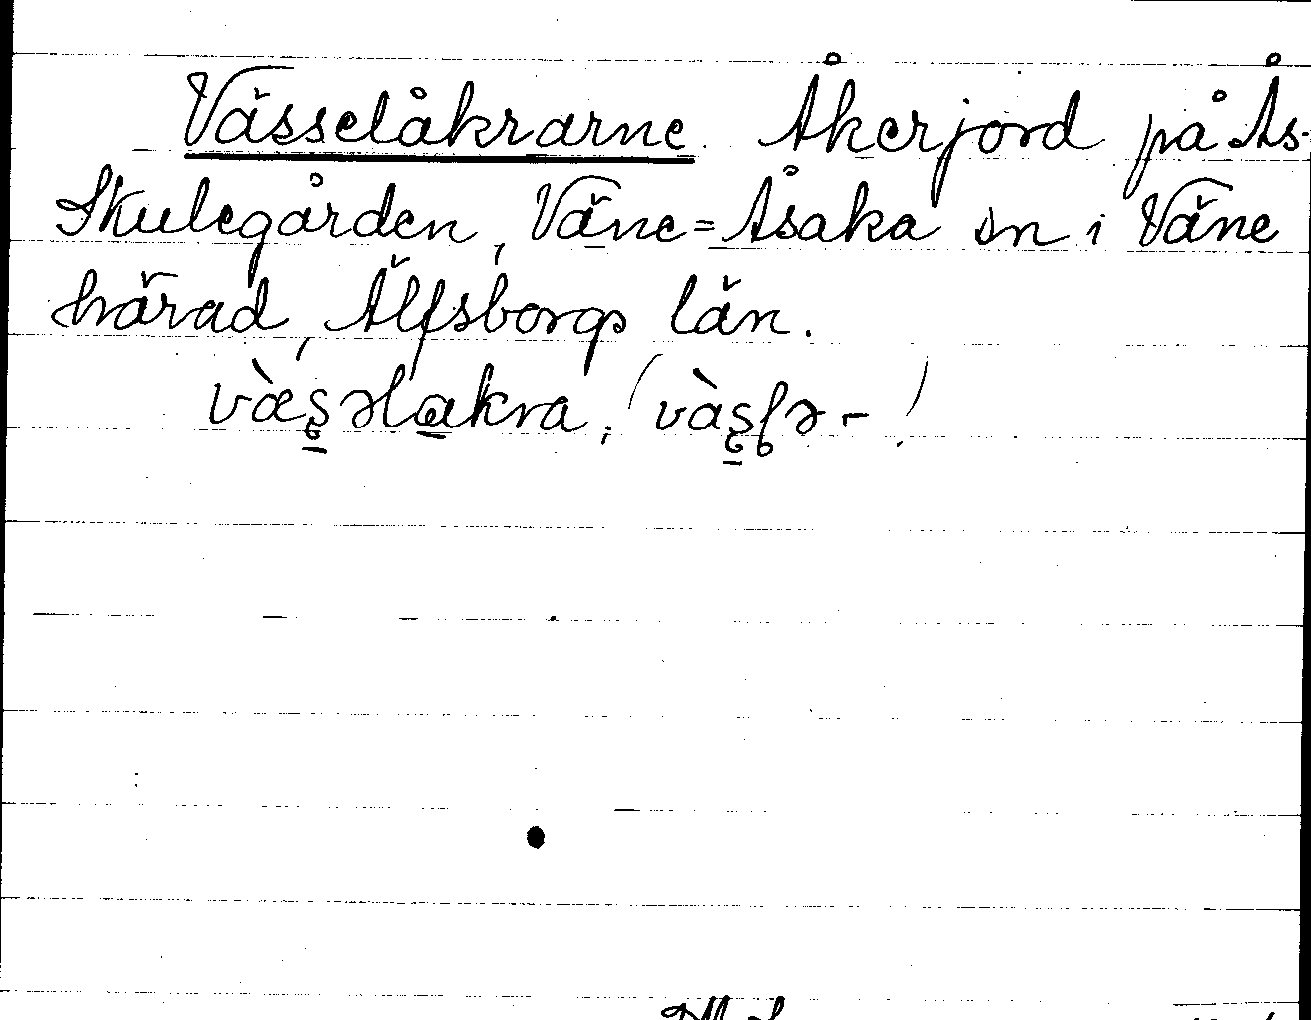 Vässelåkrarne. Åkerjord på Ås-
Skulegården, Väne=Åsaka sn i Väne
härad, Älfsborgs län.